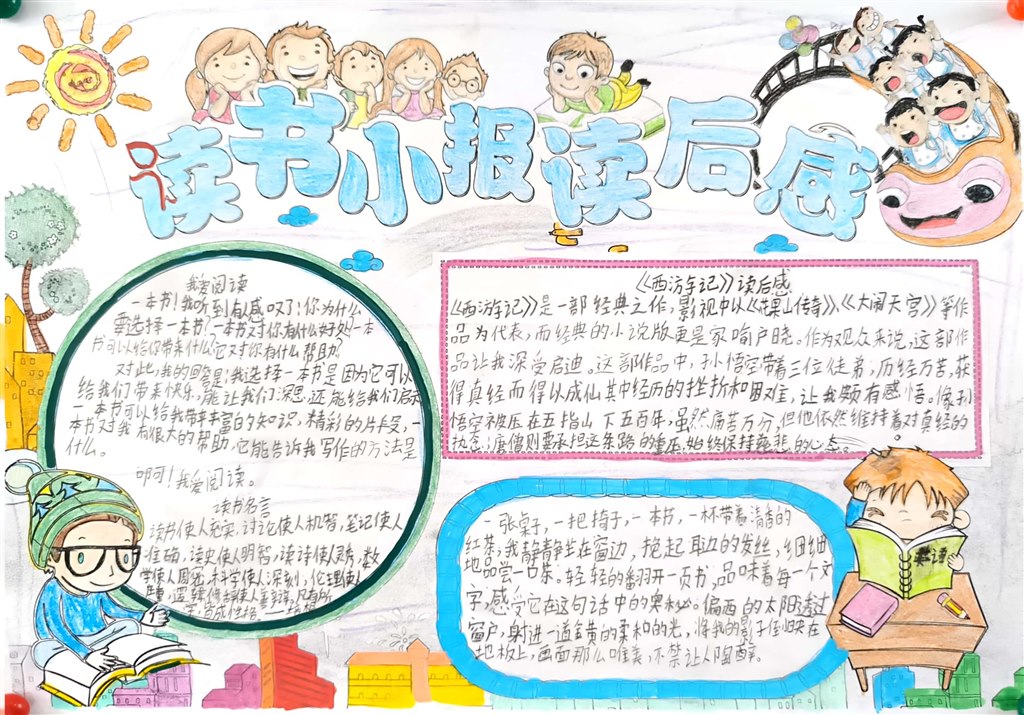 读书小报读后感
我爱阅读
一本书!我听到有人感叹了:你为什么
要选择一本书?一本书对你有什么好处?一本
书可以给你带来什么?它对你有什么帮助?
对此,我的回答是:我选择一本书是因为它可以
给我们带来快乐,能让我们深思,还能给我们启示
一本书可以给我带来丰富的知识,精彩的片段,一
本书对我有很大的帮助,它能告诉我写作的方法是
什么。
啊!我爱阅读。
读书名言
读书使人充实,讨论使人机智,笔记使人
准确,读史使人明智,读诗使人灵秀,数
学使人周密,科学使人深刻,伦理使人
《西游记》读后感
《西游记》是一部经典之作,影视中以《花果山传奇》、《大闹天宫》等作
品为代表,而经典的小说版更是家喻户晓。作为观众来说,这部作
品让我深受启迪。这部作品中,孙悟空带着三位徒弟,历经万苦,获
得真经而得以成仙其中经历的挫折和困难,让我颇有感悟。像孙
悟空被压在五指山下五百年,虽然痛苦万分,但他依然维持着对真经的
热念;唐僧则要承担这条路的重压,始终保持慈悲的心态。
一张桌子,一把椅子,一本书,一杯带着清香的
红茶,我静静坐在窗边,挽起耳边的发丝,细细
地品尝一口茶。轻轻的翻开一页书,品味着每一个文
字,感受它在这句话中的奥秘。偏西的太阳透过
窗户,射进一道金黄的柔和的光,将我的影子倒映在
地板上,画面那么唯美,不禁让人陶醉。